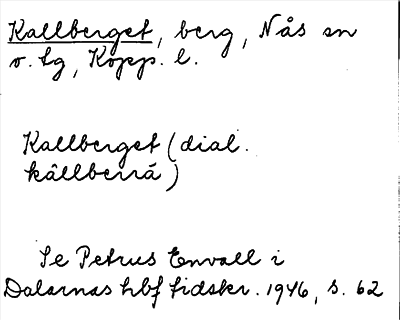 Kallberget, berg, Nås sn
v. tg, Kopp. l.
Kallberget (dial.
kållberrá)
Se Petrus Envall i
Dalarnas hbf tidskr. 1946, s. 62